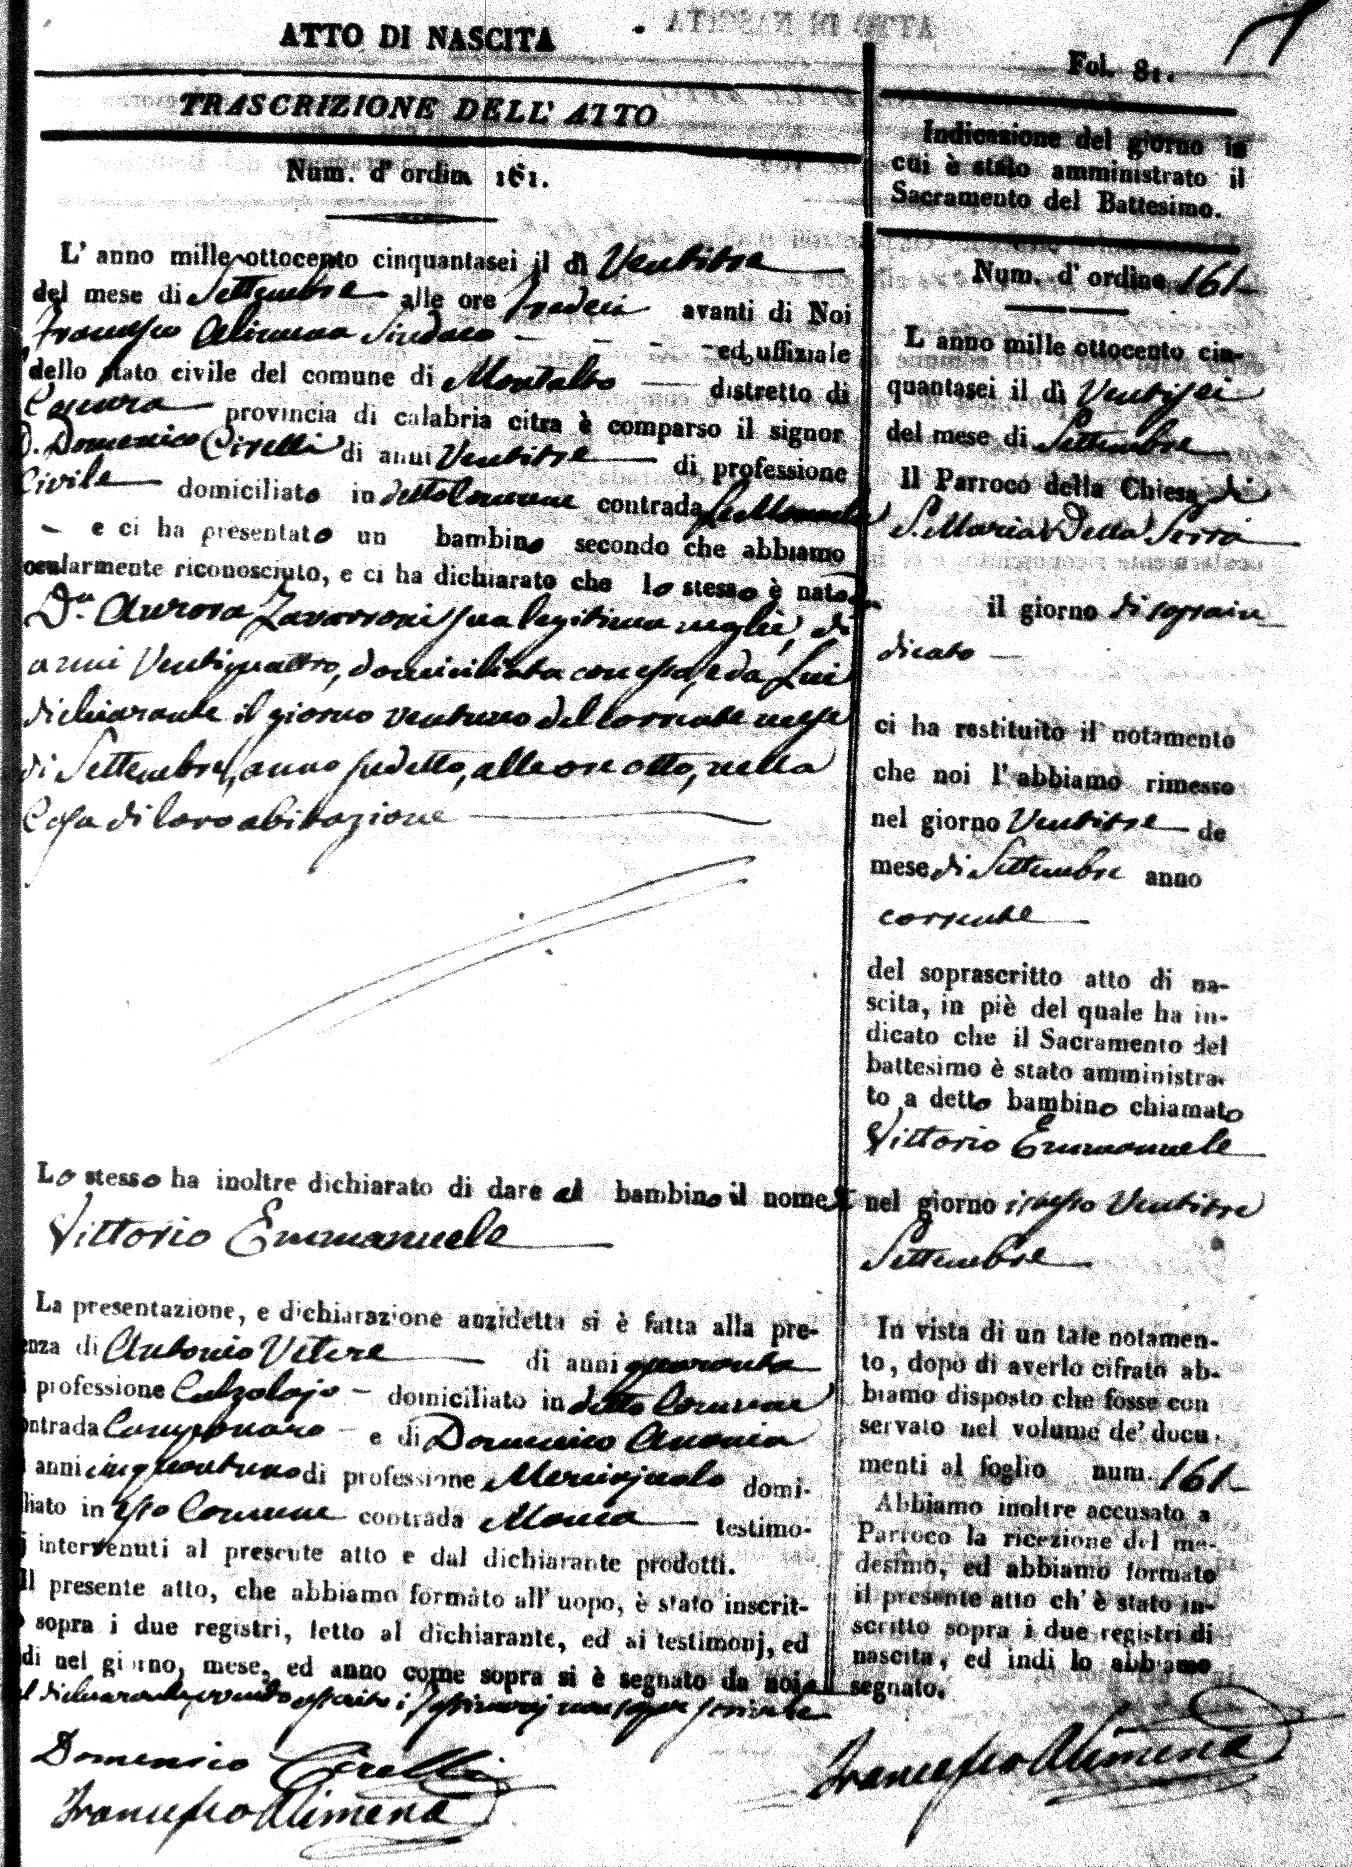 ATTO DI NASCITA
TRASCRIZIONE DELL' ATTO
Num. d' ordin 161.
L' anno mille ottocento cinquantasei il dì Ventitre
del mese di Settembre alle ore tredeci avanti di Noi
Francesco Alimena Sindaco ed uffiziale
dello stato civile del comune di Montalto distretto di
Cosenza provincia di calabria citra è comparso il signor
D. Domenico Cirelli di anni Ventitre di professione
Civile domiciliato in detto Comune contrada
e ci ha presentato un bambino secondo che abbiamo
ocularmente riconosciuto, e ci ha dichiarato che lo stesso è nato da
D.a Aurora Zavarroni sua legitima moglie, di
anni Ventiquattro, domiciliata con esso, e da Lui
dichiarante il giorno ventuno del corrente mese
di Settembre, anno sudetto, alle ore otto, nella
Casa di loro abitazione
Lo stesso ha inoltre dichiarato di dare al bambino il nome di
Vittorio Emmanuele
La presentazione, e dichiarazione anzidetta si è fatta alla pre-
enza di Antonio Vetere di anni quaranta
professione Calzolajo domiciliato in detto Comune
ontrada e di Domenico
anni cinquantuno di professione domi-
liato in Comune contrada testimo-
j intervenuti al presente atto e dal dichiarante prodotti.
Il presente atto, che abbiamo formato all' uopo, è stato inscrit-
o sopra i due registri, letto al dichiarante, ed ai testimonj, ed
di nel giorno, mese, ed anno come sopra si è segnato da noi e
l dichiarante, avendo asserito i testimonj non saper scrivere
Domenico Cirelli
Francesco Alimena
Fol. 81.
Indicazione del giorno in
cui è stato amministrato il
Sacramento del Battesimo.
Num. d' ordine 161
L' anno mille ottocento cin-
quantasei il dì Ventisei
del mese di Settembre
Il Parroco della Chiesa di
S. Maria Della Serra
il giorno di sopra in
dicato
ci ha restituito il notamento
che noi l' abbiamo rimesso
nel giorno Ventitre de
mese di Settembre anno
corrente
del soprascritto atto di na-
scita, in piè del quale ha in-
dicato che il Sacramento del
battesimo è stato amministra-
to a detto bambino chiamato
Vittorio Emmanuele
nel giorno istesso Ventitre
Settembre
In vista di un tale notamen-
to, dopo di averlo cifrato ab-
biamo disposto che fosse con
servato nel volume de' docu-
menti al foglio num. 161
Abbiamo inoltre accusato a
Parroco la ricezione del me-
desimo, ed abbiamo formato
il presente atto ch' è stato in-
scritto sopra i due registri di
nascita, ed indi lo abbiamo
segnato.
Francesco Alimena